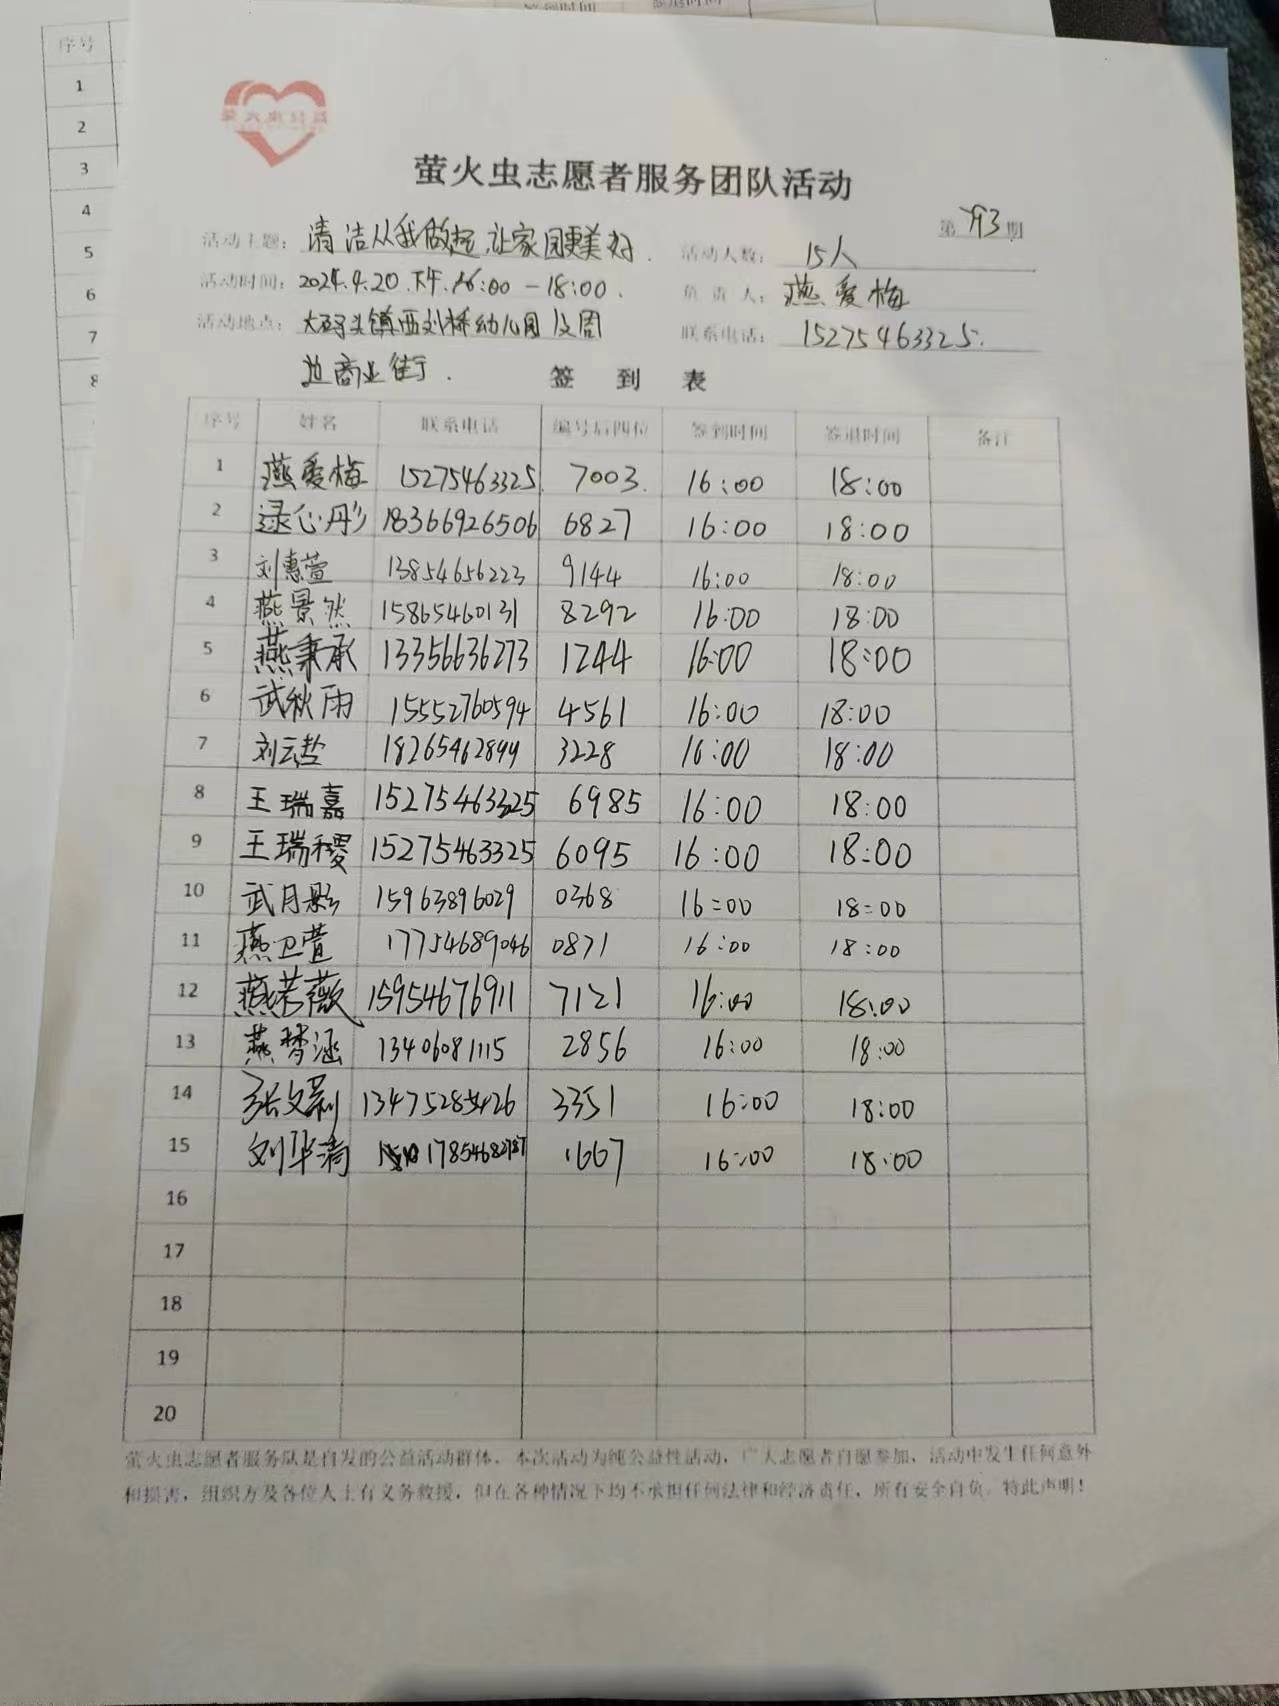 签到时间 签退时间
序号
1
2
3
4
5
6
7
8
萤火虫志愿者服务团队活动
第793期
活动主题：清洁从我做起，让家园更美好.
活动人数：15人
活动时间：2024.4.20.下午.16:00－18:00.
负责人：燕爱梅
活动地点：大码头镇西刘桥幼儿园及周
联系电话：15275463325.
边商业街.
签到表
序号 姓名 联系电话 编号后四位 签到时间 签退时间 备注
1 燕爱梅 15275463325 7003 16:00 18:00
2 逯心彤 18366926506 6827 16:00 18:00
3 刘惠萱 13854656223 9144 16:00 18:00
4 燕景然 15865460131 8292 16:00 18:00
5 燕秉承 13356636273 1244 16:00 18:00
6 武秋雨 15552760594 4561 16:00 18:00
7 刘云 18265462899 3228 16:00 18:00
8 王瑞嘉 15275463325 6985 16:00 18:00
9 王瑞稷 15275463325 6095 16:00 18:00
10 武月影 15963896029 0368 16:00 18:00
11 燕卫萱 17754689046 0871 16:00 18:00
12 燕若薇 15954676911 7121 16:00 18:00
13 燕梦涵 13406081115 2856 16:00 18:00
14 张文 13475285426 3351 16:00 18:00
15 刘华清 17854682787 1667 16:00 18:00
16
17
18
19
20
萤火虫志愿者服务队是自发的公益活动群体，本次活动为纯公益性活动，广大志愿者自愿参加，活动中发生任何意外
和损害，组织方及各位人士有义务救援，但在各种情况下均不承担任何法律和经济责任，所有安全自负。特此声明！